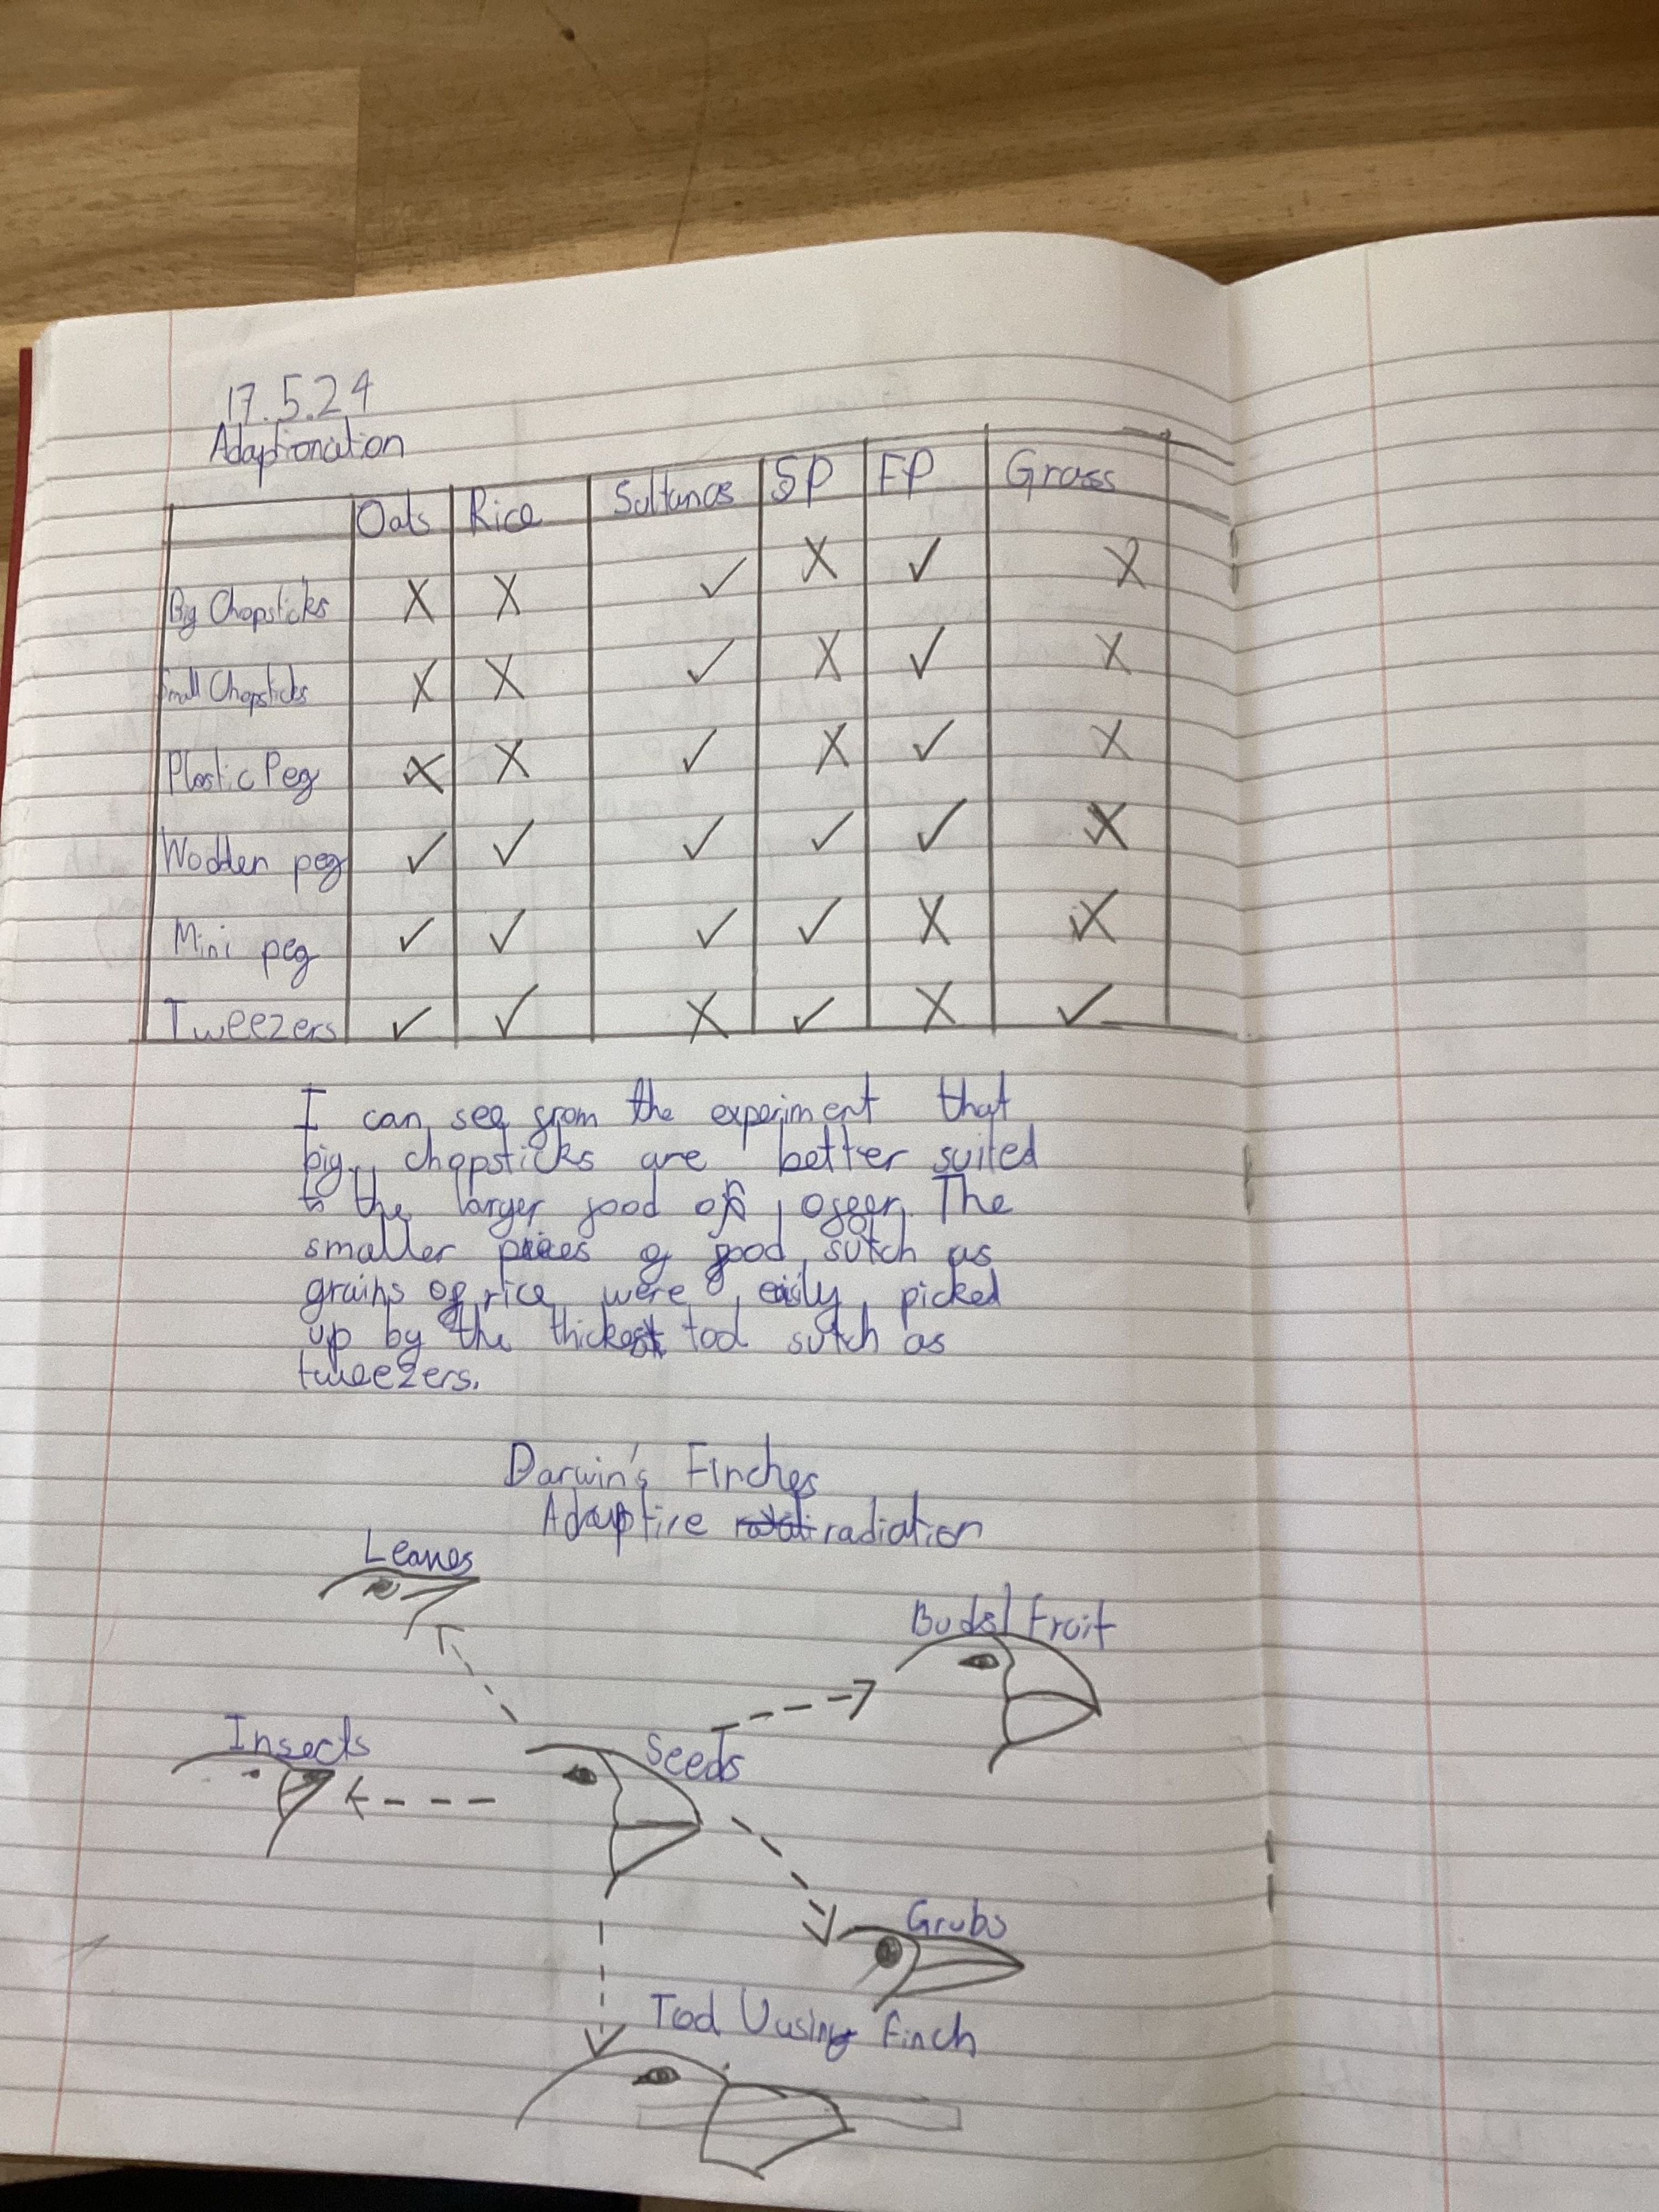 17.5.24
Adaptionation
Oats Rice Sultanas SP FP Grass
Big Chopsticks X X ✓ X ✓ X
Small Chopsticks X X ✓ X ✓ X
Plastic Peg X X ✓ X ✓ X
Wodden peg ✓ ✓ ✓ ✓ ✓ X
Mini peg ✓ ✓ ✓ ✓ X X
Tweezers ✓ ✓ X ✓ X ✓
I can see from the experiment that
big chopsticks are better suited
to the larger food on offer. The
smaller peices of food sutch as
grains of rice were easily picked
up by the thickest tool sutch as
tweezers.
Darwin's Finches
Adaptive radiation
Leaves
Buds/Fruit
Insects
Seeds
Grubs
Tool Uusing finch